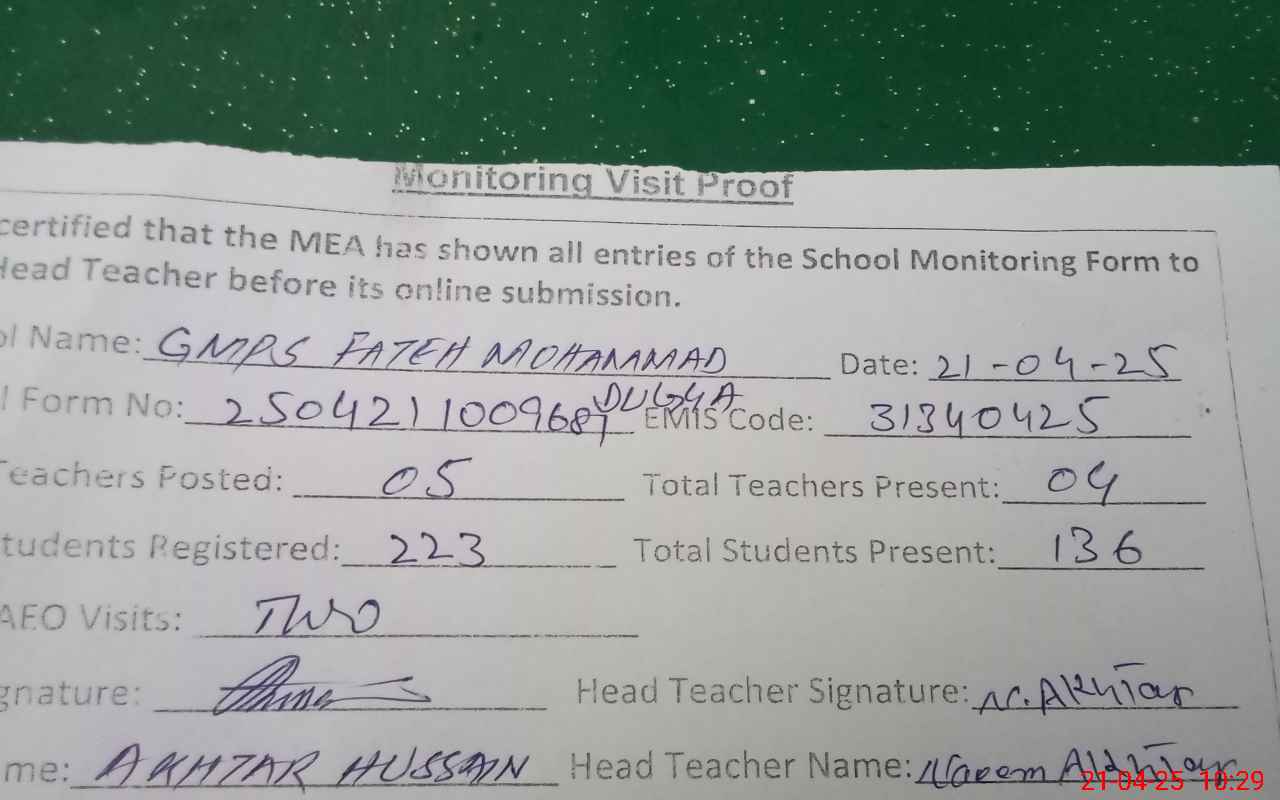 Monitoring Visit Proof
certified that the MEA has shown all entries of the School Monitoring Form to
Head Teacher before its online submission.
ol Name: GMPS FATEH MOHAMMAD Date: 21-04-25
l Form No: 2504211009687 EMIS Code: 31340425
Teachers Posted: 05 Total Teachers Present: 04
tudents Registered: 223 Total Students Present: 136
AEO Visits: TWO
gnature: Head Teacher Signature: N. Akhtar
me: AKHTAR HUSSAIN Head Teacher Name: Naeem Akhtar
21-04-25 10:29